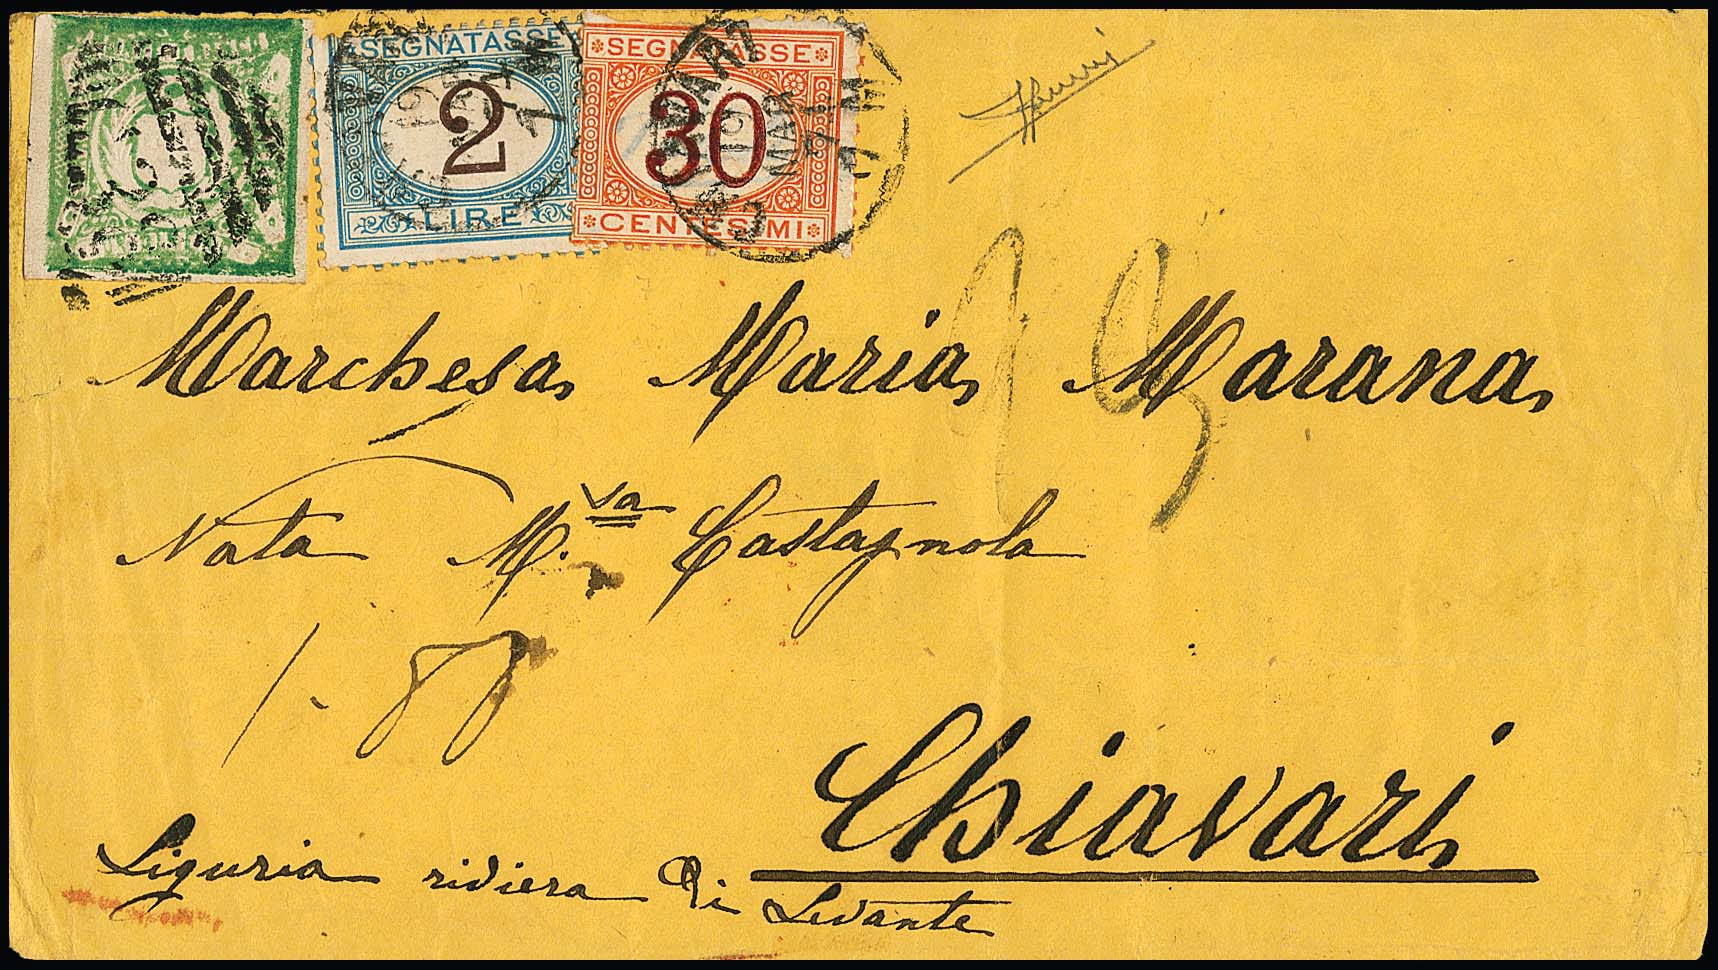 SEGNATASSE
2
LIRE
SEGNATASSE
30
CENTESIMI
19
MAR
71
Marchesa Maria Marana
Nata M.va Castagnola
1.88
Chiavari
Liguria riviera di Levante